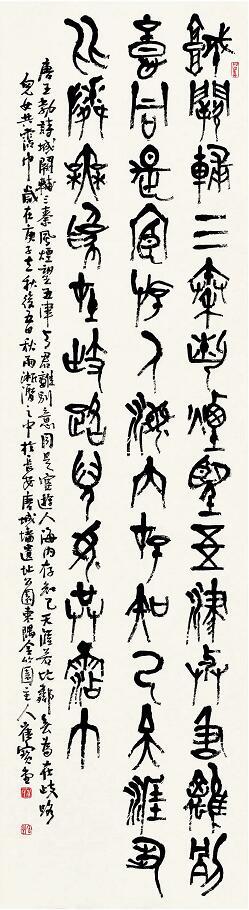 城闕輔三秦風煙望五津与君離別
意同是宦游人海内存知己天涯若
比鄰無為在歧路兒女共霑巾
唐王勃詩城闕輔三秦風煙望五津与君離別意同是宦遊人海内存知己天涯若比鄰無為在歧路
兒女共霑巾歲在庚子立秋後五日秋雨淅瀝之中於長安唐城墻遺址公園東隅含竹園主人崔寶